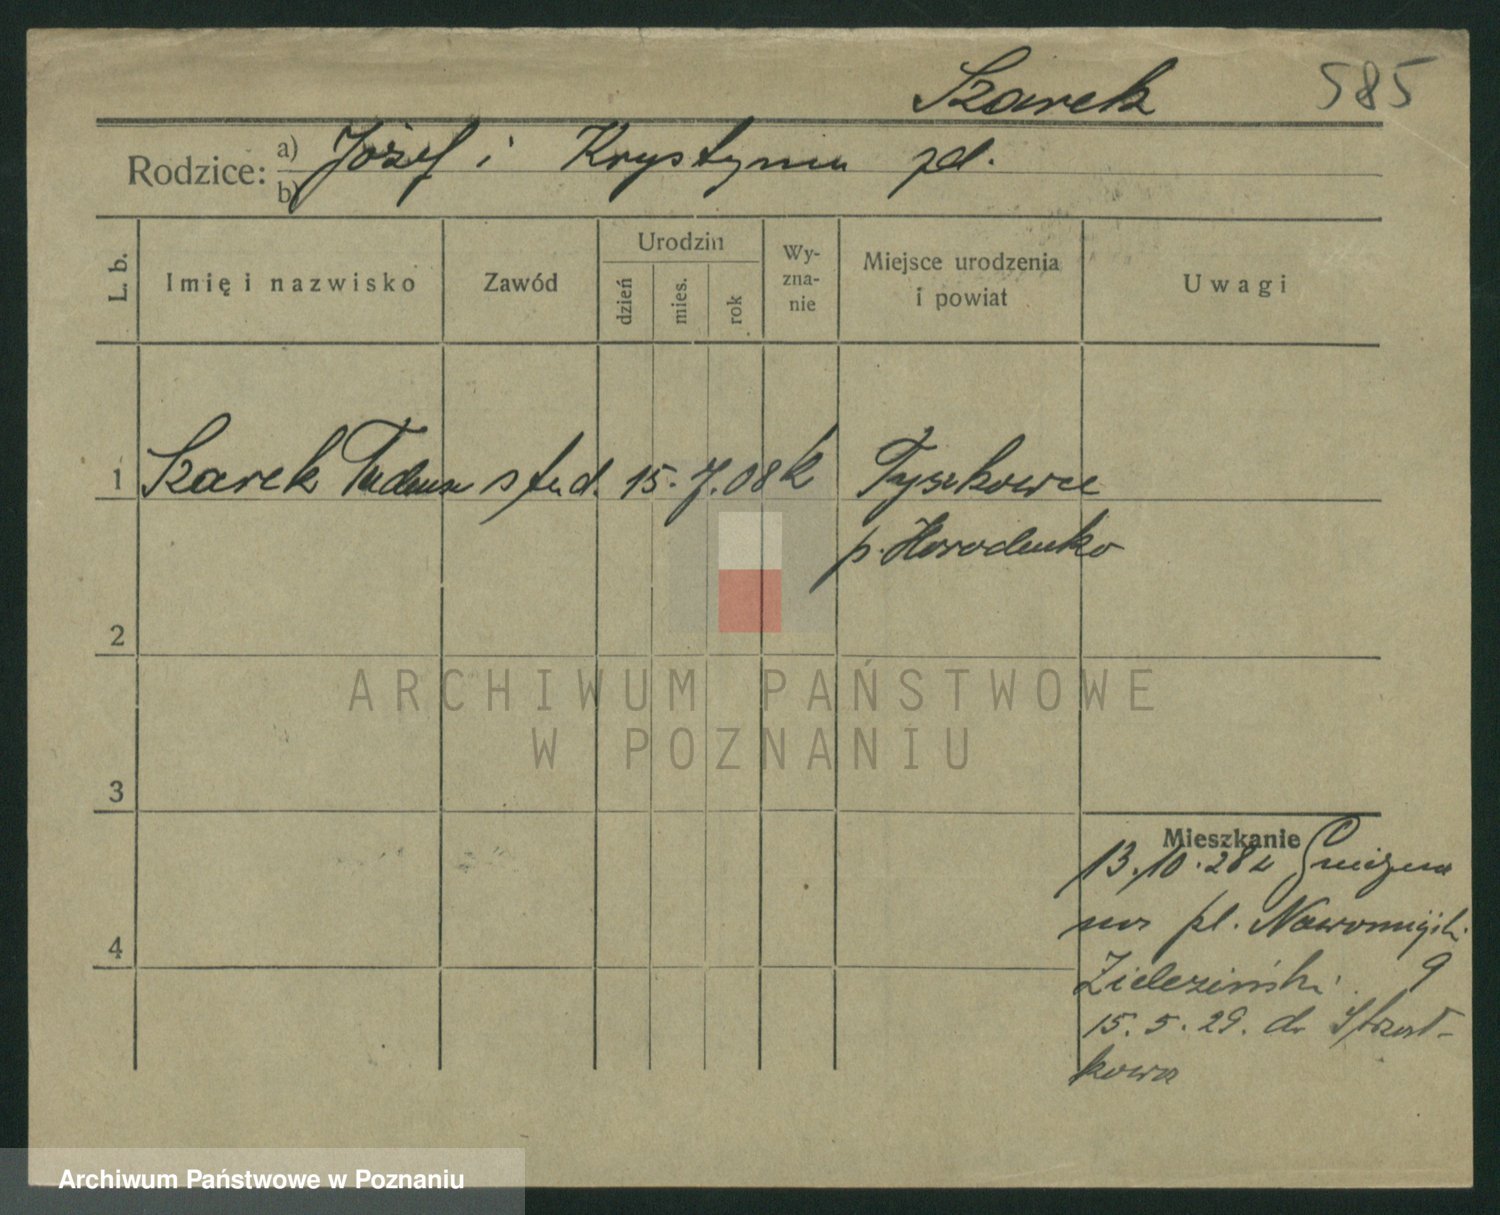 Szarek 585
Rodzice: a) Józef i Krystyna zd.
b)
L. b.
Imię i nazwisko
Zawód
Urodzin
dzień
mies.
rok
Wy-
zna-
nie
Miejsce urodzenia
i powiat
Uwagi
1 Szarek Tadeusz stud. 15. 7. 08 k Tyszkowce
p. Horodenko
2
3
4
ARCHIWUM PAŃSTWOWE
W POZNANIU
Mieszkanie
13.10.28 z Gniezna
na pl. Nowomiejsk.
Zieleziński 9
15.5.29. do
Archiwum Państwowe w Poznaniu